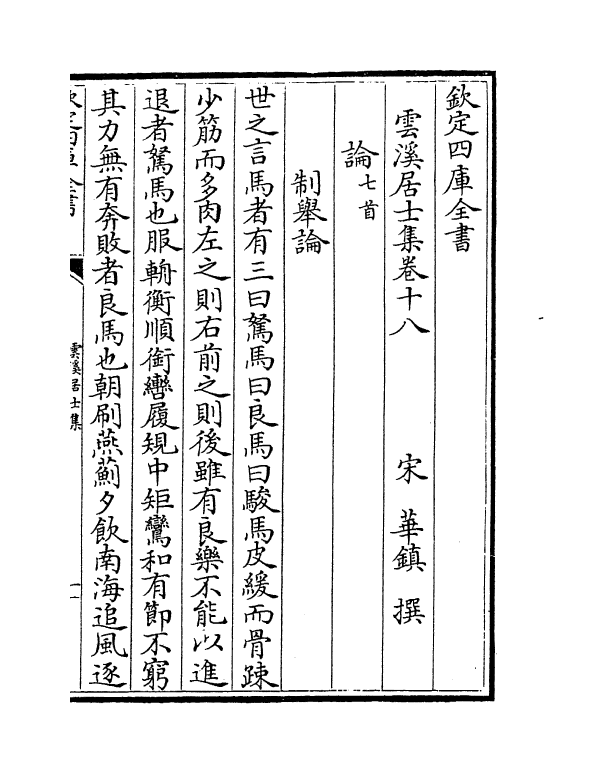 欽定四庫全書
雲溪居士集卷十八
宋 華鎮 撰
論七首
制舉論
世之言馬者有三曰駑馬曰良馬曰駿馬皮緩而骨踈
少筋而多肉左之則右前之則後雖有良樂不能以進
退者駑馬也服輈衡順銜轡履規中矩鸞和有節不窮
其力無有奔敗者良馬也朝刷燕薊夕飲南海追風逐
雲溪居士集
一